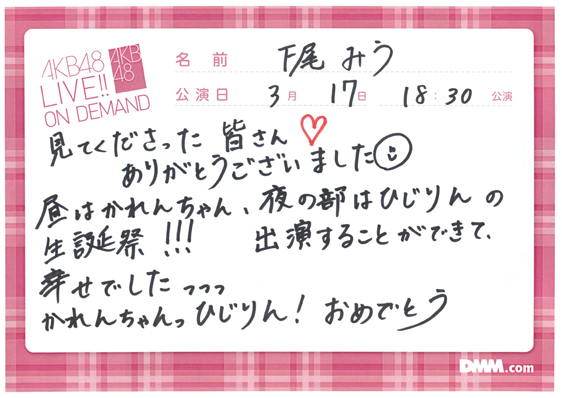 AKB48
LIVE!!
ON DEMAND
AKB
48
名前 下尾みう
公演日 3月 17日 18:30 公演
見てくださった 皆さん♡
ありがとうございました☺
昼はかれんちゃん、夜の部はひじりんの
生誕祭!!! 出演することができて、
幸せでしたっっっ
かれんちゃんっひじりん!おめでとう
DMM.com